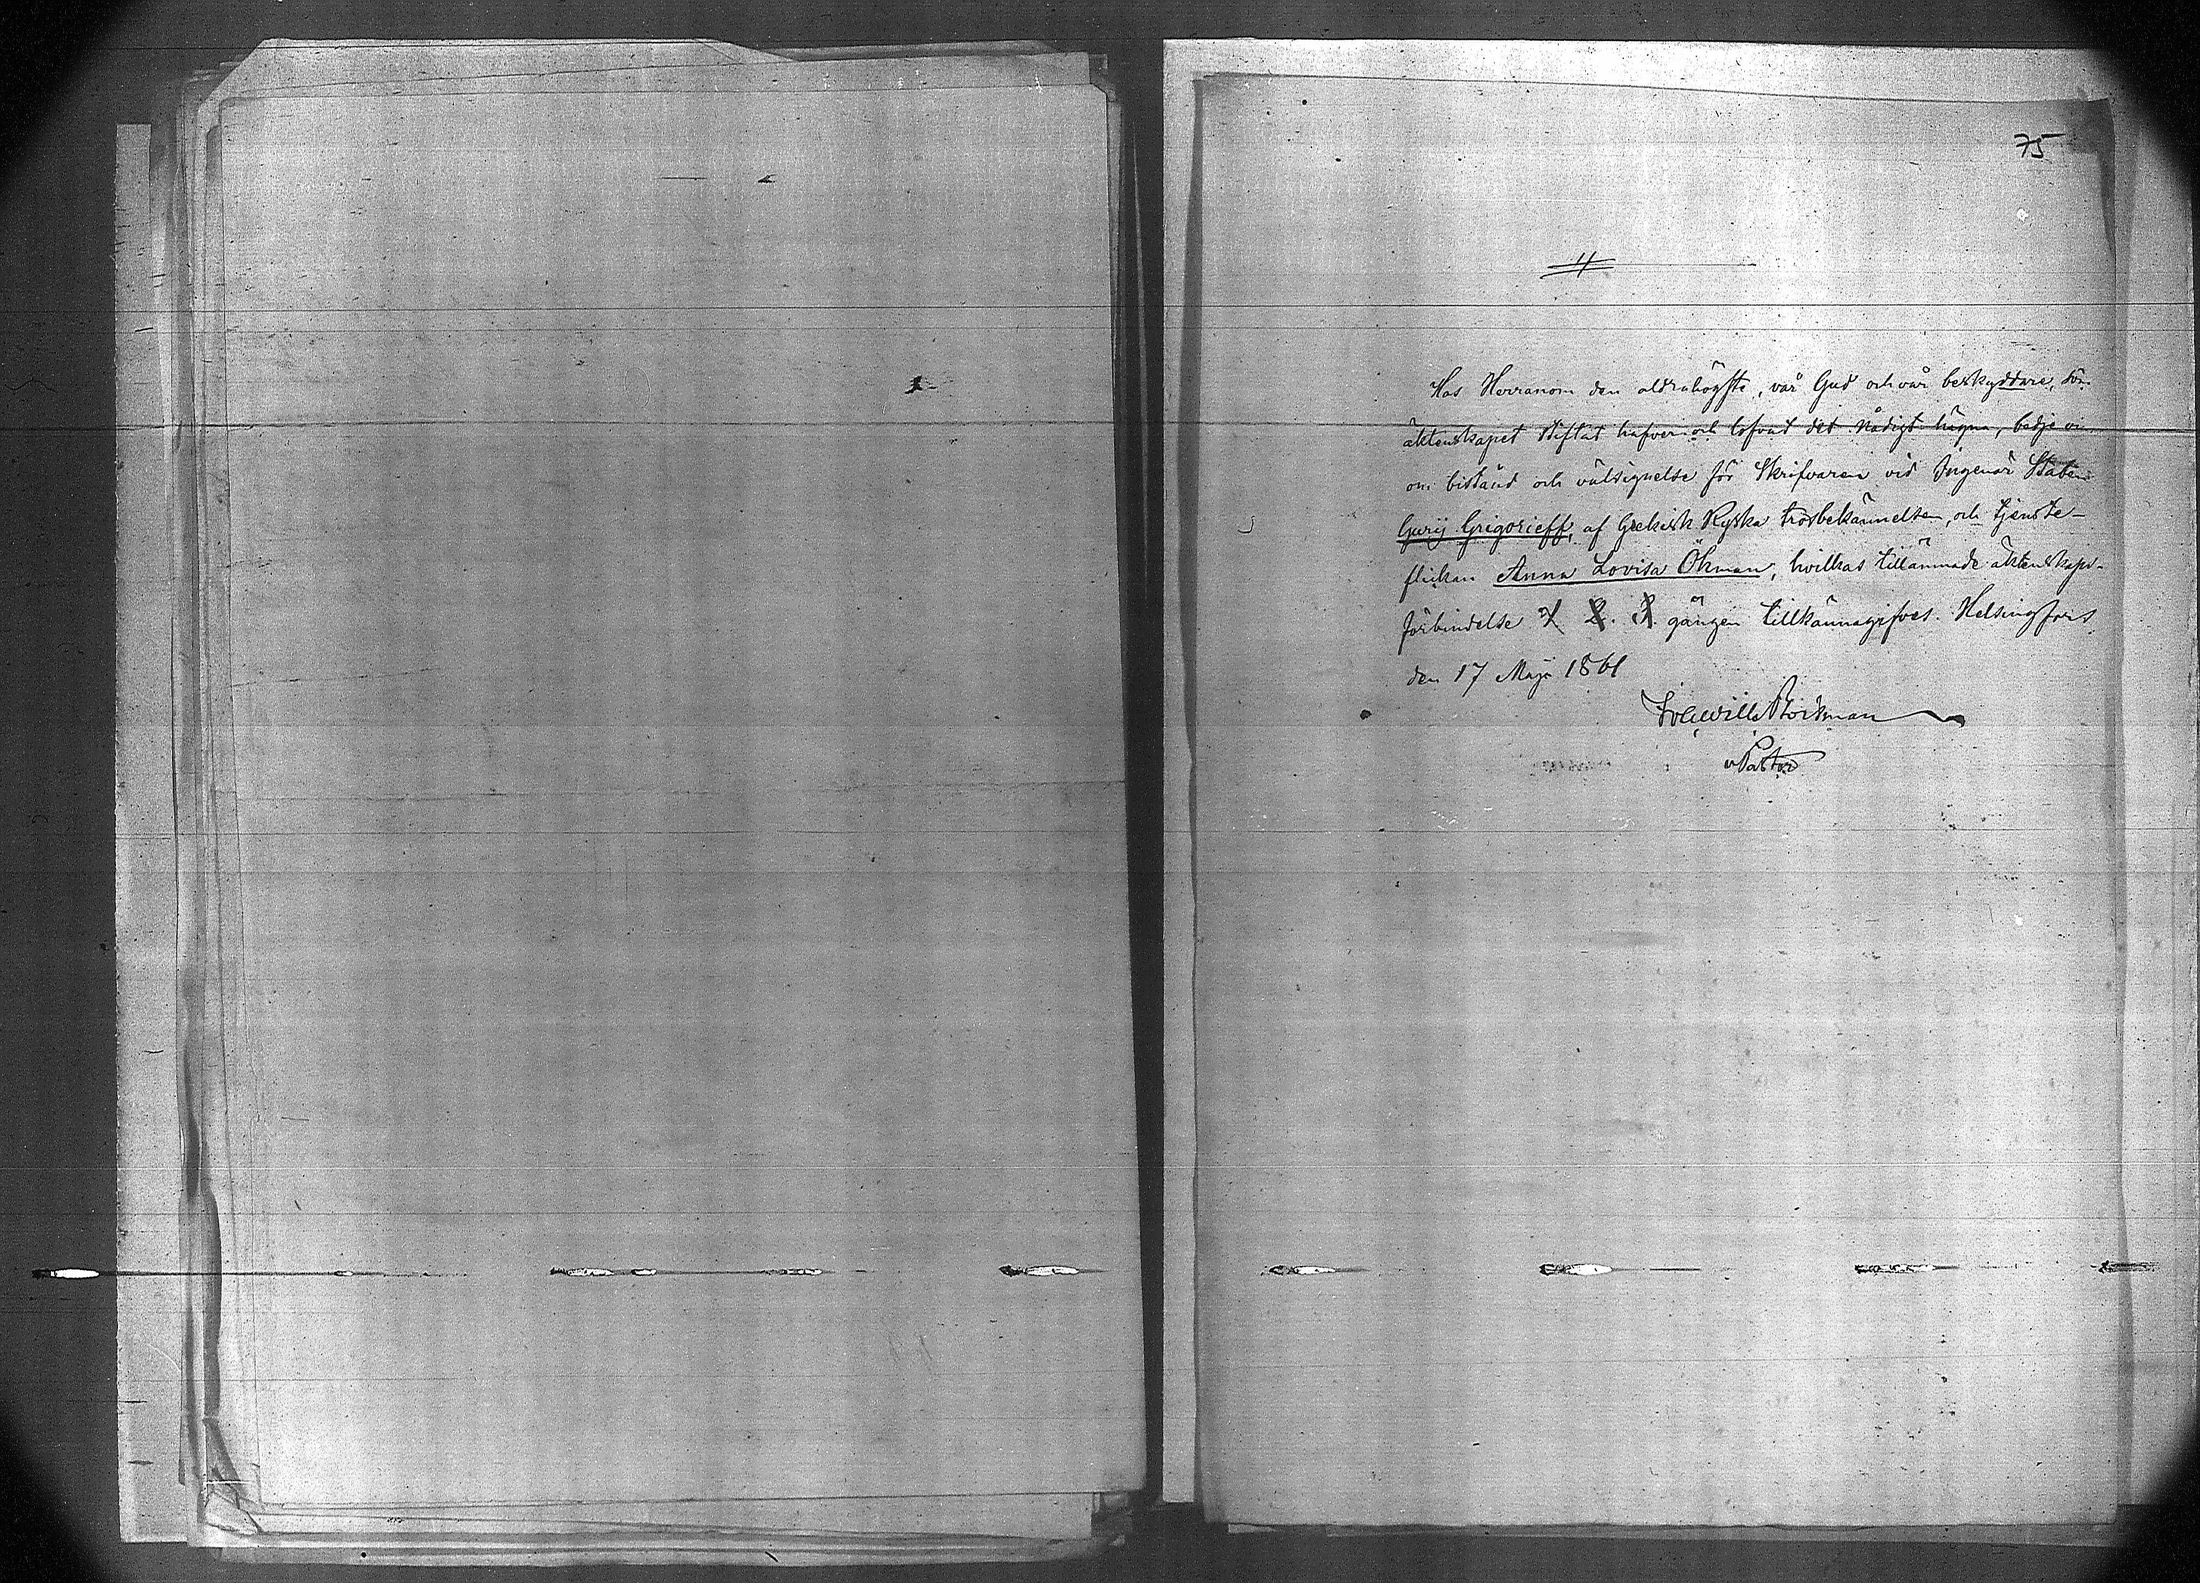 75
11
Hos Herranom den aldrahögste, vår Gud och vår beskyddare, som
äktenskapet stiftat hafver och lofvat det nådigt hägna, bedje vi
om bistånd och välsignelse för Skrifvaren vid Ingeniör Staben
Gurij Grigorieff, af Grekisk Ryska trosbekännelsen, och tjenste-
flickan Anna Lovisa Öhman, hvilkas tillämnade äktenskaps-
förbindelse 1. 2. 3. gången tillkännagifves. Helsingfors
den 17 Maji 1861
Pastor